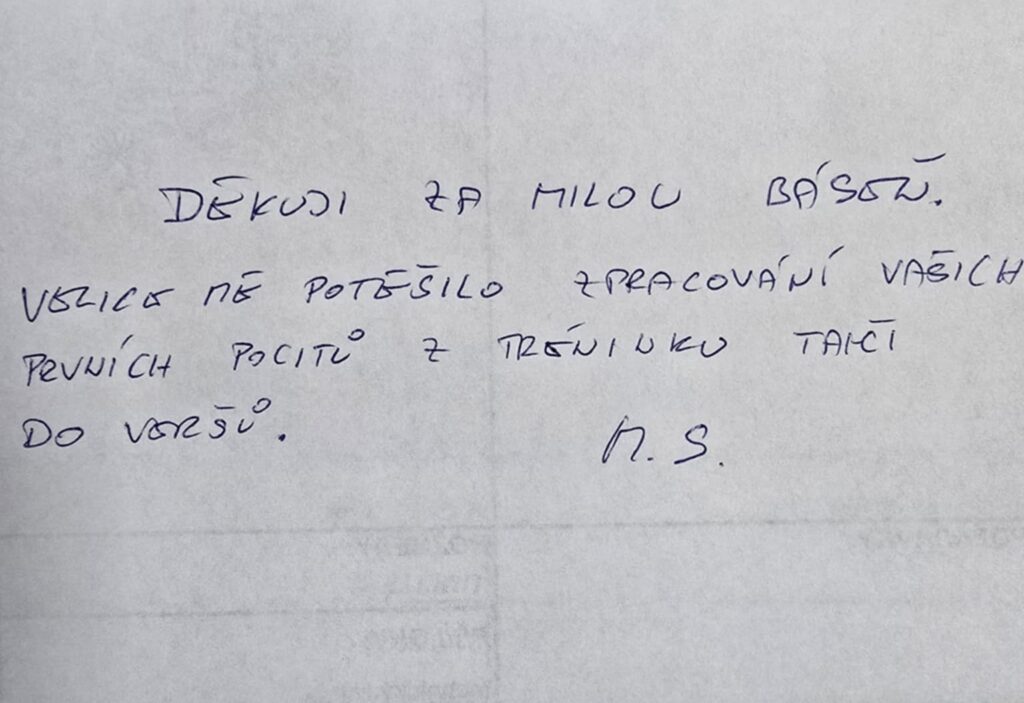 DĚKUJI ZA MILOU BÁSEŇ.
VELICE MĚ POTĚŠILO ZPRACOVÁNÍ VAŠICH
PRVNÍCH POCITŮ Z TRÉNINKU TAIČI
DO VERŠŮ.
M. S.